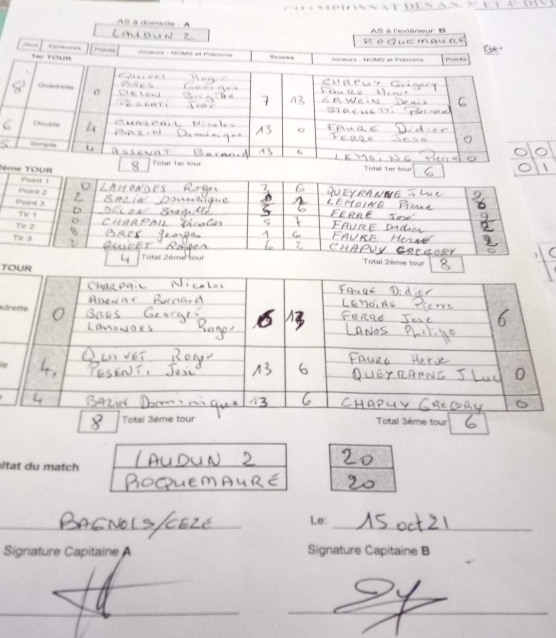 CHAMPIONNAT DES A.S. 3º ET 4º DIV
AS à domicile : A
AS à l'extérieur: B
LAUDUN 2
ROQUEMAURE
Jeux Epreuves Points Joueurs - NOMS et Prénoms Scores Joueurs - NOMS et Prénoms Points
1er TOUR
8 Quadrette 0 QUIVET Roger 7 13 CHAPUY Grégory 6
BRES Georges FAURE Hervé
DELON Brigitte
PESENTI José Bernard
6 Double 4 CHARPAIL Nicolas 13 0 FAURE Didier 0
BAZIN Dominique FERRE José
5 Simple 4 ASSENAT Bernard 13 6 LEMOINE Pierre 0
8 Total 1er tour Total 1er tour 6
2ème TOUR
Point 1 0 LAHONDES Roger 3 6 QUEYRANNE J Luc
Point 2 2 BAZIN Dominique LEMOINE Pierre 0
Point 3 0 DELON Brigitte 5 6 FERRE José
Tir 1 0 CHARPAIL Nicolas 5 FAURE Didier 2
Tir 2 BRES Georges 1 6 FAURE Hervé 2
Tir 3 2 QUIVET Roger 6 2 CHAPUY GREGORY 0
4 Total 2ème tour Total 2ème tour 8
TOUR
adrette 0 CHARPAIL Nicolas 6 13 FAURE Didier 6
Bernard LEMOINE Pierre
BRES Georges FERRE José
LAHONDES Roger LANOS Philippe
4 QUIVET Roger 13 6 FAURE Herve 0
PESENTI José QUEYRANNE J Luc
4 BAZIN Dominique 13 6 CHAPUY GREGORY 0
8 Total 3ème tour Total 3ème tour 6
ltat du match LAUDUN 2 20
ROQUEMAURE 20
BAGNOLS/CEZE Le: 15 oct 21
Signature Capitaine A Signature Capitaine B